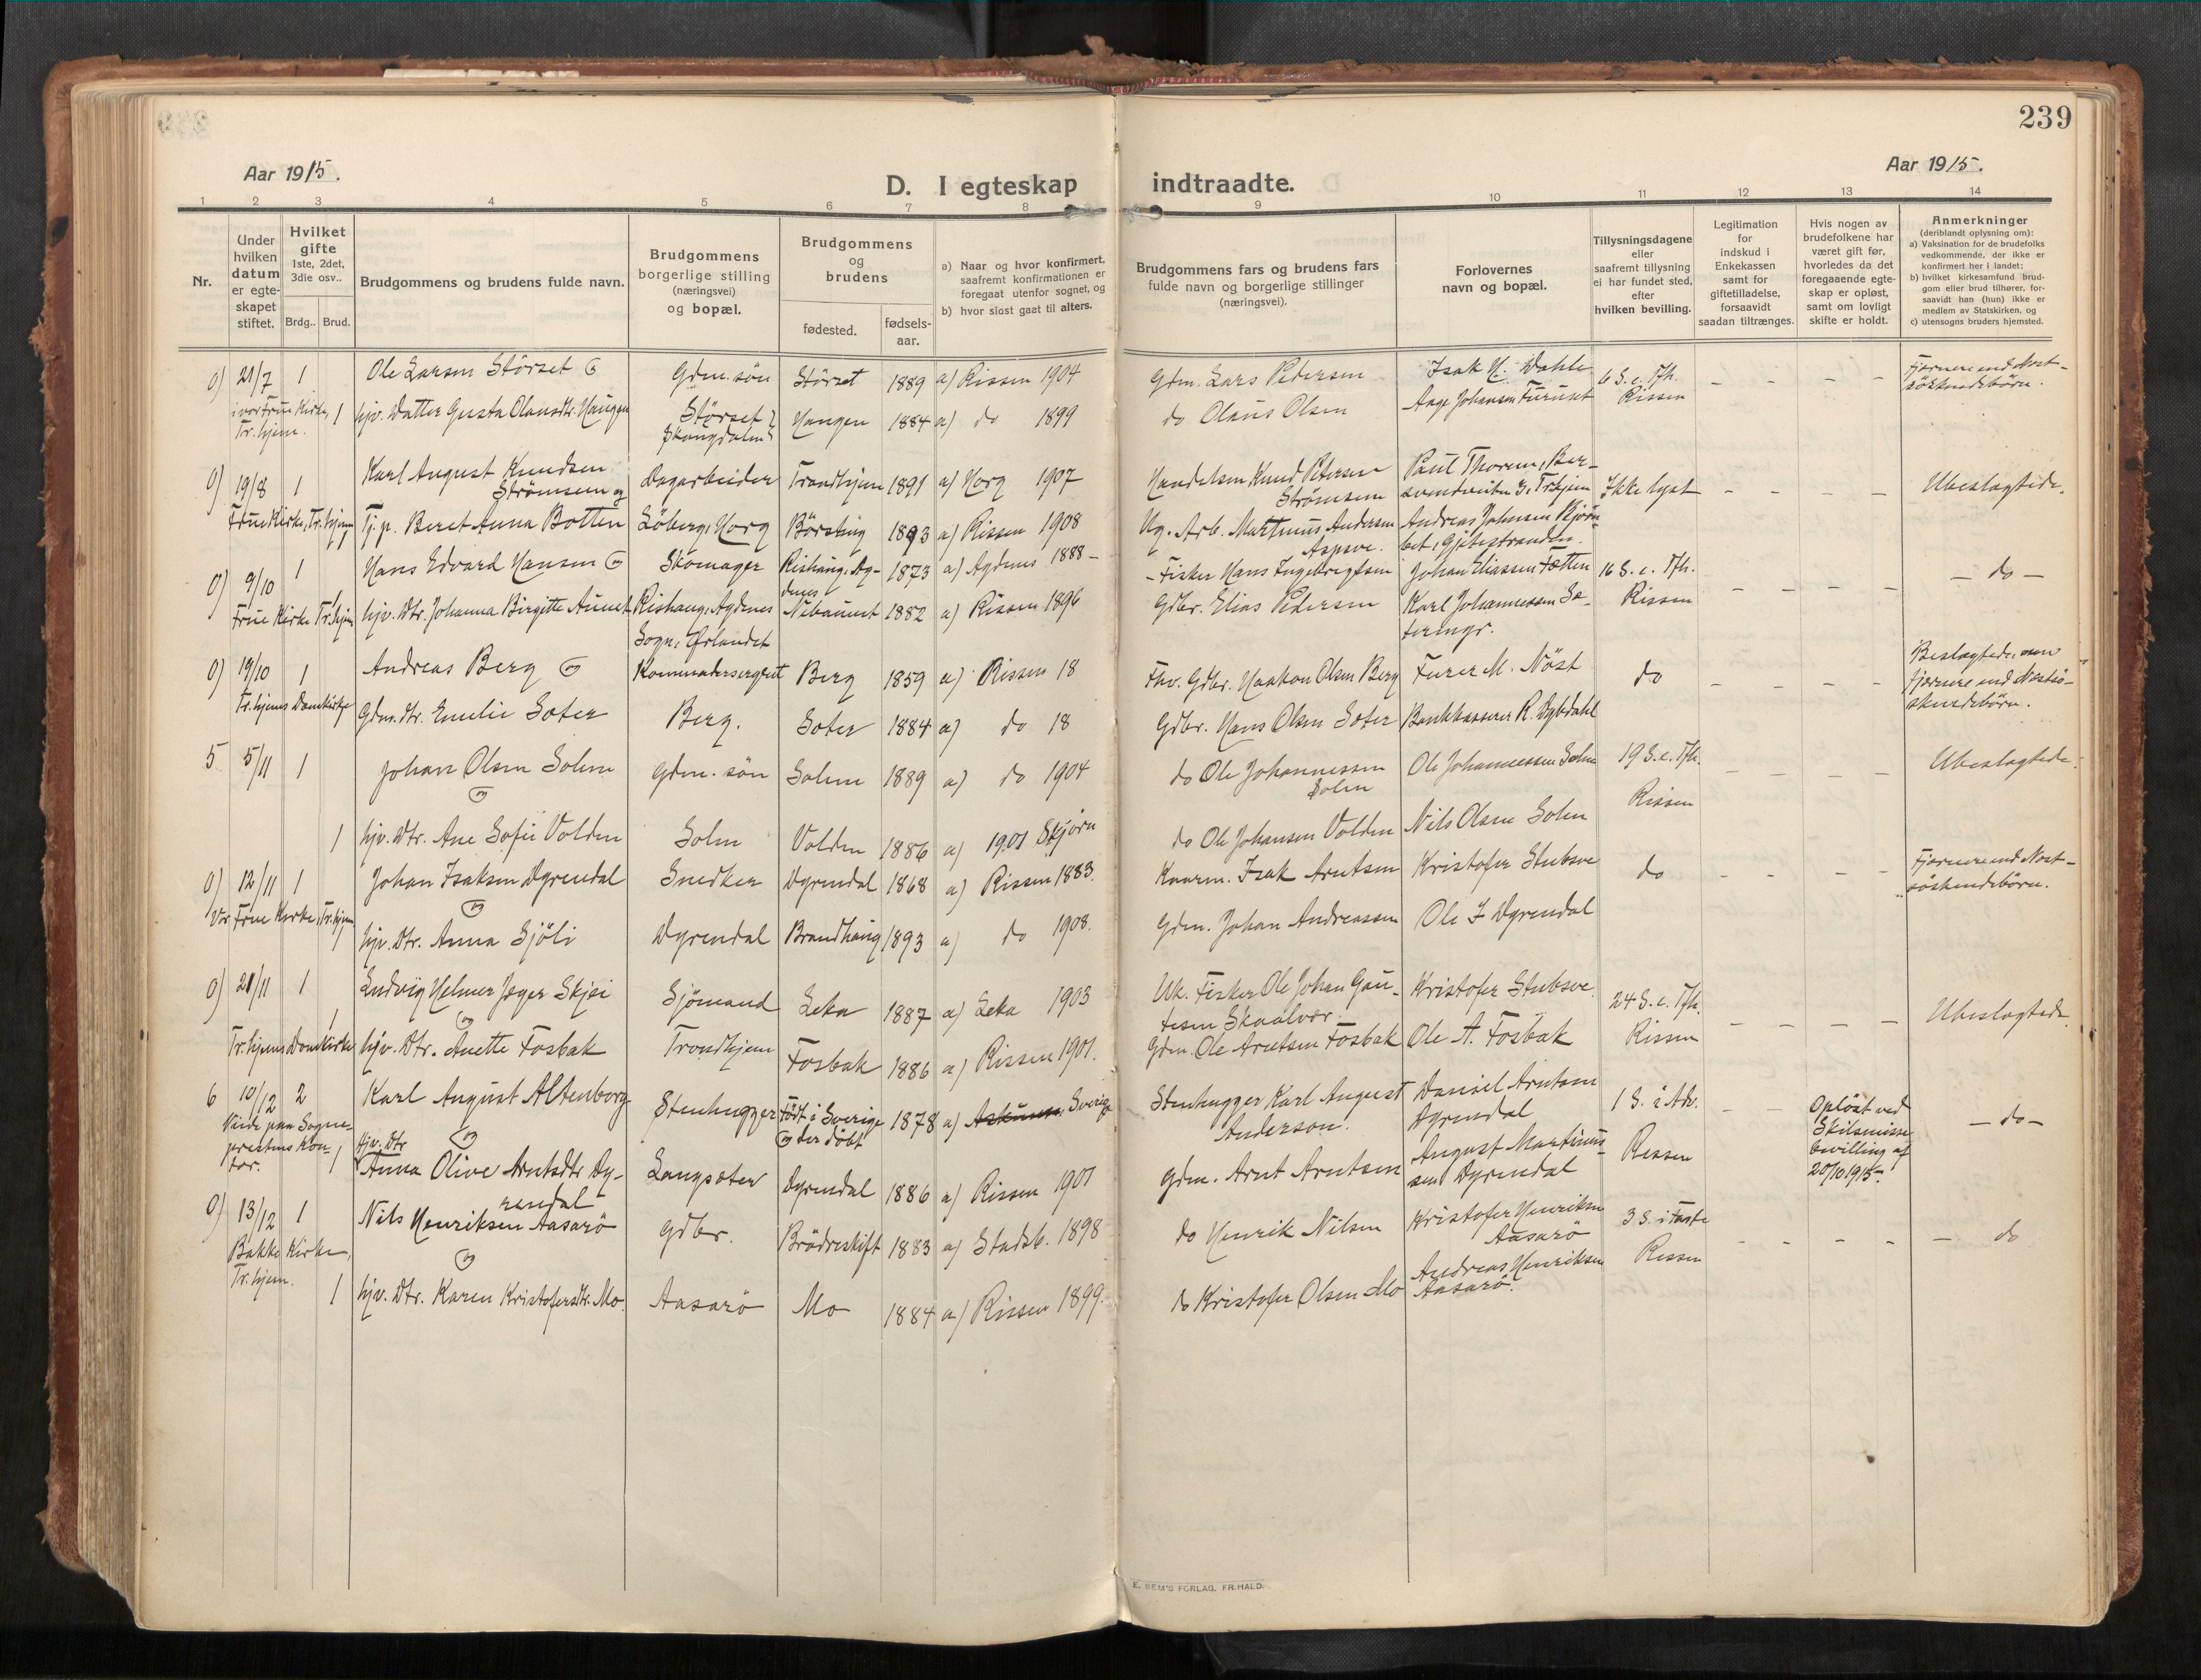 239
Aar 1915.
Aar 1915.
D. I egteskap indtraadte.
1 2 3 4 5 6 7 8 9 10 11 12 13 14
Nr.
Under
hvilken
datum
er egte-
skapet
stiftet.
Hvilket
gifte
1ste, 2det,
3die osv..
Brdg.. Brud.
Brudgommens og brudens fulde navn.
Brudgommens
borgerlige stilling
(næringsvei)
og bopæl.
Brudgommens
og
brudens
fødested.
fødsels-
aar.
a) Naar og hvor konfirmert,
saafremt konfirmationen er
foregaat utenfor sognet, og
b) hvor sidst gaat til alters.
Brudgommens fars og brudens fars
fulde navn og borgerlige stillinger
(næringsvei).
Forlovernes
navn og bopæl.
Tillysningsdagene
eller
saafremt tillysning
ei har fundet sted,
efter
hvilken bevilling.
Legitimation
for
indskud i
Enkekassen
samt for
giftetilladelse,
forsaavidt
saadan tiltrænges.
Hvis nogen av
brudefolkene har
været gift før,
hvorledes da det
foregaaende egte-
skap er opløst,
samt om lovligt
skifte er holdt.
Anmerkninger
(deriblandt oplysning om):
a) Vaksination for de brudefolks
vedkommende, der ikke er
konfirmert her i landet;
b) hvilket kirkesamfund brud-
gom eller brud tilhører, for-
saavidt han (hun) ikke er
medlem av Statskirken, og
c) utensogns bruders hjemsted.
0) 21/7 1 Ole Larsen Störset og Gdm. sön Störset 1889 a) Rissen 1904 Gdm. Lars Pedersen Isak H. Dahle 6 S. e. Tfh. - - - - Fjernere end Nest-
i vor Frue Kirke, 1 hjv. Datter Gusta Olausdtr. Haugen Störset Haugen 1884 a) do 1899 do Olaus Olsen Aage Johansen Furunet Rissen söskendebörn.
Tr.hjem.
0) 19/8 1 Karl August Knudsen
Strömsem og Dagarbeider Trondhjem 1891 a) Horg 1907 Knud Petersen
Strömsem Paul Thorem, Ber-
Tr.hjem Ikke lyst - - - - Ubeslægtede.
Frue Kirke, Tr.hjem Tj. p. Beret Anna Botten Löberg, Horg Börsting 1893 a) Rissen 1908 Ug. Arb. Martinus Andersen
Aspsve. Andreas Johnsen
0) 9/10 1 Hans Edvard Hansen og Skomager Rishaug, Ag-
denes 1873 a) Agdenes 1888 - - Fisker Hans Ingebrigtsen Johan Eliassen Fætten 16 S. e. Tfh. - - - - - do -
Frue Kirke Tr.hjem 1 hjv. Dtr. Johanna Birgitte Aunet Rishaug, Agdenes
Sogn, Ørlandet Nebaunet 1882 a) Rissen 1896 Gdbr. Elias Pedersen Karl Johannessen Sæ-
teringr. Rissen
0) 19/10 1 Andreas Berg og Kommandersergeant Berg 1859 a) Rissen 18 Fhv. Gdbr. Haakon Olsen Berg Furer M. Nöst do - - - - Beslægtede, men
fjernere end Nestsö-
skendebörn.
Tr.hjems Domkirke Gdm. dtr. Emelie Soter Berg. Soter 1884 a) do 18 Gdbr. Hans Olsen Soter Bankkasserer R. Dybdahl
5 5/11 1 Johan Olsen Solem
og Gdm. sön Solem 1889 a) do 1904 do Ole Johannessen
Solem Ole Johannessen Solem 19 S. e. Tfh. - - - - Ubeslægtede.
1 hjv. Dtr. Ane Sofie Volden Solem Volden 1886 a) 1901 Skjørn do Ole Johansen Volden Nils Olsen Solem Rissen
0) 12/11 1 Johan Isaksen Dyrendal
og Snedker Dyrendal 1868 a) Rissen 1883. Kaarm. Isak Arntsen Kristofer Stubsve do - - - - Fjernere end Nest-
söskendebörn.
Vor Frue Kirke, Tr.hjem 1 hjv. Dtr. Anna Sjöli Dyrendal Brandhaug 1893 a) do 1908. Gdm. Johan Andreassen Ole I Dyrendal
0) 21/11 1 Ludvig Helmer Jæger Skjei
og Sjömand Leka 1887 a) Leka 1903 Uk. Fisker Ole Johan Gau-
tesen Skaalvær. Kristofer Stubsve. 24 S. e. Tfh. - - - - Ubeslægtede
Tr.hjems Domkirke 1 hjv. Dtr. Anette Fosbak Trondhjem Fosbak 1886 a) Rissen 1901. Gdm. Ole Arntsen Fosbak Ole A. Fosbak Rissen
6 10/12 2 Karl August Altenborg
og Stenhugger Född i Sverige
og der döbt 1878 a) Askum, Sverige Stenhugger Karl August
Anderson. Daniel Arntsen
Dyrendal 1 S. i Adv. - - Oplöst ved
Skilsmisse
bevilling af
20/10 1915. - do -
Viede paa Sogne-
prestens kon-
tor. 1 Hjv. Dtr
Anna Olive Arntsdtr. Dy-
rendal Langsæter Dyrendal 1886 a) Rissen 1901 Gdm. Arnt Arntsen August Martinus-
sen Dyrendal Rissen
0) 13/12 1 Nils Henriksen Aasarö
og Gdbr. Brödreskift 1883 a) Stadsb. 1898 do Henrik Nilsen Kristofer Henriksen
Aasarö 3 S. i Faste - - - - - do
Bakke Kirke,
Tr.hjem. 1 hjv. Dtr. Karen Kristofersdtr. Mo. Aasarö Mo 1884 a) Rissen 1899. do Kristofer Olsen Mo Andreas Henriksen
Aasarö. Rissen
E. SEM'S FORLAG, FR.HALD.